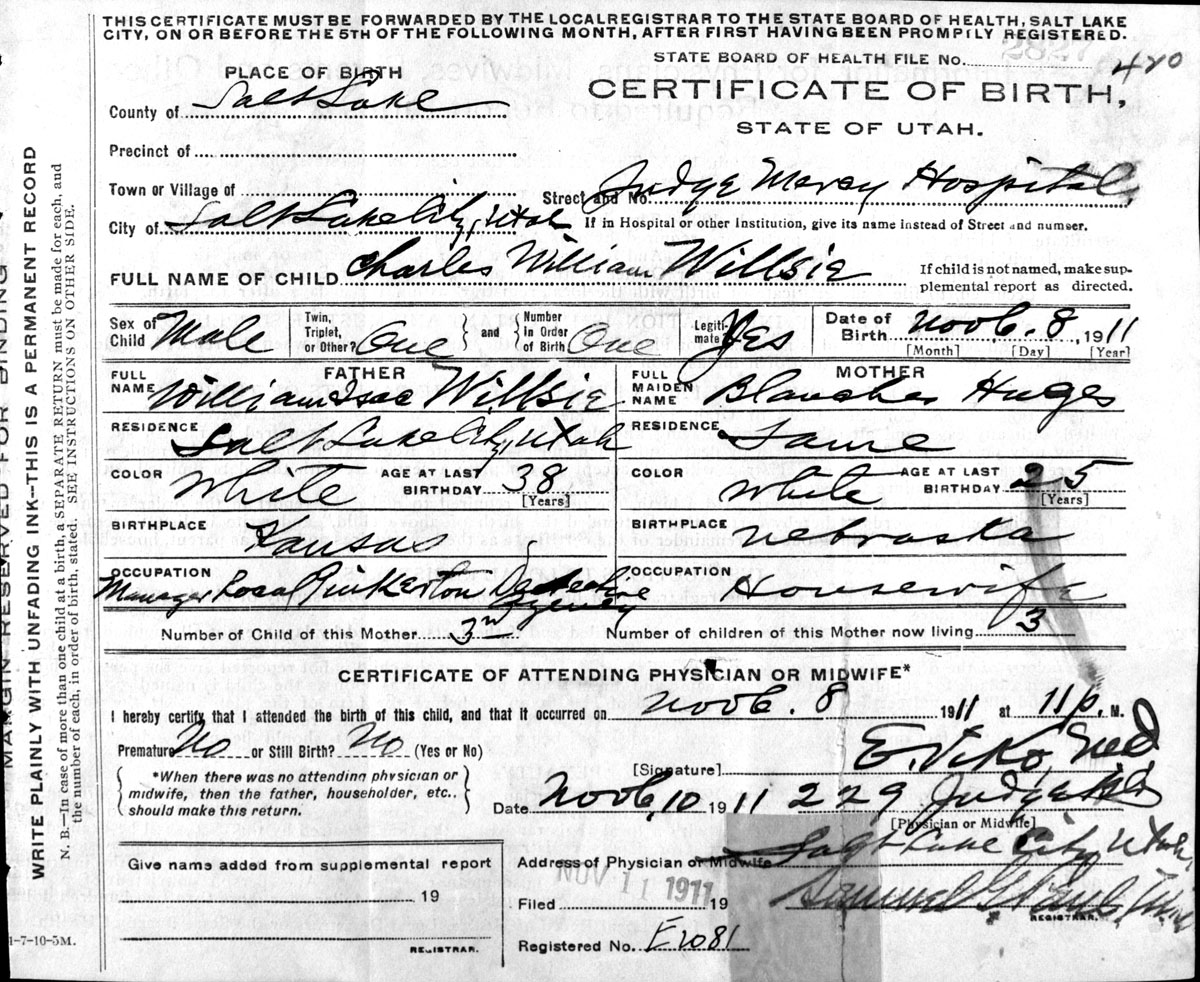 THIS CERTIFICATE MUST BE FORWARDED BY THE LOCAL REGISTRAR TO THE STATE BOARD OF HEALTH, SALT LAKE
CITY, ON OR BEFORE THE 5TH OF THE FOLLOWING MONTH, AFTER FIRST HAVING BEEN PROMPTLY REGISTERED.
STATE BOARD OF HEALTH FILE NO. 2827 420
PLACE OF BIRTH
CERTIFICATE OF BIRTH,
STATE OF UTAH.
County of Salt Lake
Precinct of
Town or Village of
Street and No. Judge Mercy Hospital,
City of Salt Lake City, Utah
If in Hospital or other Institution, give its name instead of Street and numser.
FULL NAME OF CHILD Charles William Willsie
If child is not named, make sup-
plemental report as directed.
Sex of Child Male
Twin, Triplet, or Other? One
and Number in Order of Birth One
Legiti-mate? Yes
Date of Birth Novb. 8, 1911
[Month] [Day] [Year]
FATHER
FULL NAME William Isac Willsie
MOTHER
FULL MAIDEN NAME Blanche Huges
RESIDENCE Salt Lake City, Utah
RESIDENCE Same
COLOR White
AGE AT LAST BIRTHDAY 38 [Years]
COLOR White
AGE AT LAST BIRTHDAY 25 [Years]
BIRTHPLACE Kansas
BIRTHPLACE Nebraska
OCCUPATION Manager Local Pinkerton Detective Agency
OCCUPATION Housewife
Number of Child of this Mother 3rd
Number of children of this Mother now living 3
CERTIFICATE OF ATTENDING PHYSICIAN OR MIDWIFE*
I hereby certify that I attended the birth of this child, and that it occurred on Novb. 8 1911 at 11 p. M.
Premature No or Still Birth? No (Yes or No)
[Signature] E. Viko, Md
*When there was no attending physician or
midwife, then the father, householder, etc..
should make this return.
Date Novb, 10 1911
229 Judge Bld
[Physician or Midwife]
Give name added from supplemental report
19
REGISTRAR.
Address of Physician or Midwife Salt Lake City, Utah,
NOV 11 1911
Filed 19
Samuel G. Paul, M.D.
REGISTRAR.
Registered No. E2081
1-7-10-5M.
MARGIN RESERVED FOR BINDING
WRITE PLAINLY WITH UNFADING INK--THIS IS A PERMANENT RECORD
N. B.—In case of more than one child at a birth, a SEPARATE RETURN must be made for each, and
the number of each, in order of birth, stated. SEE INSTRUCTIONS ON OTHER SIDE.